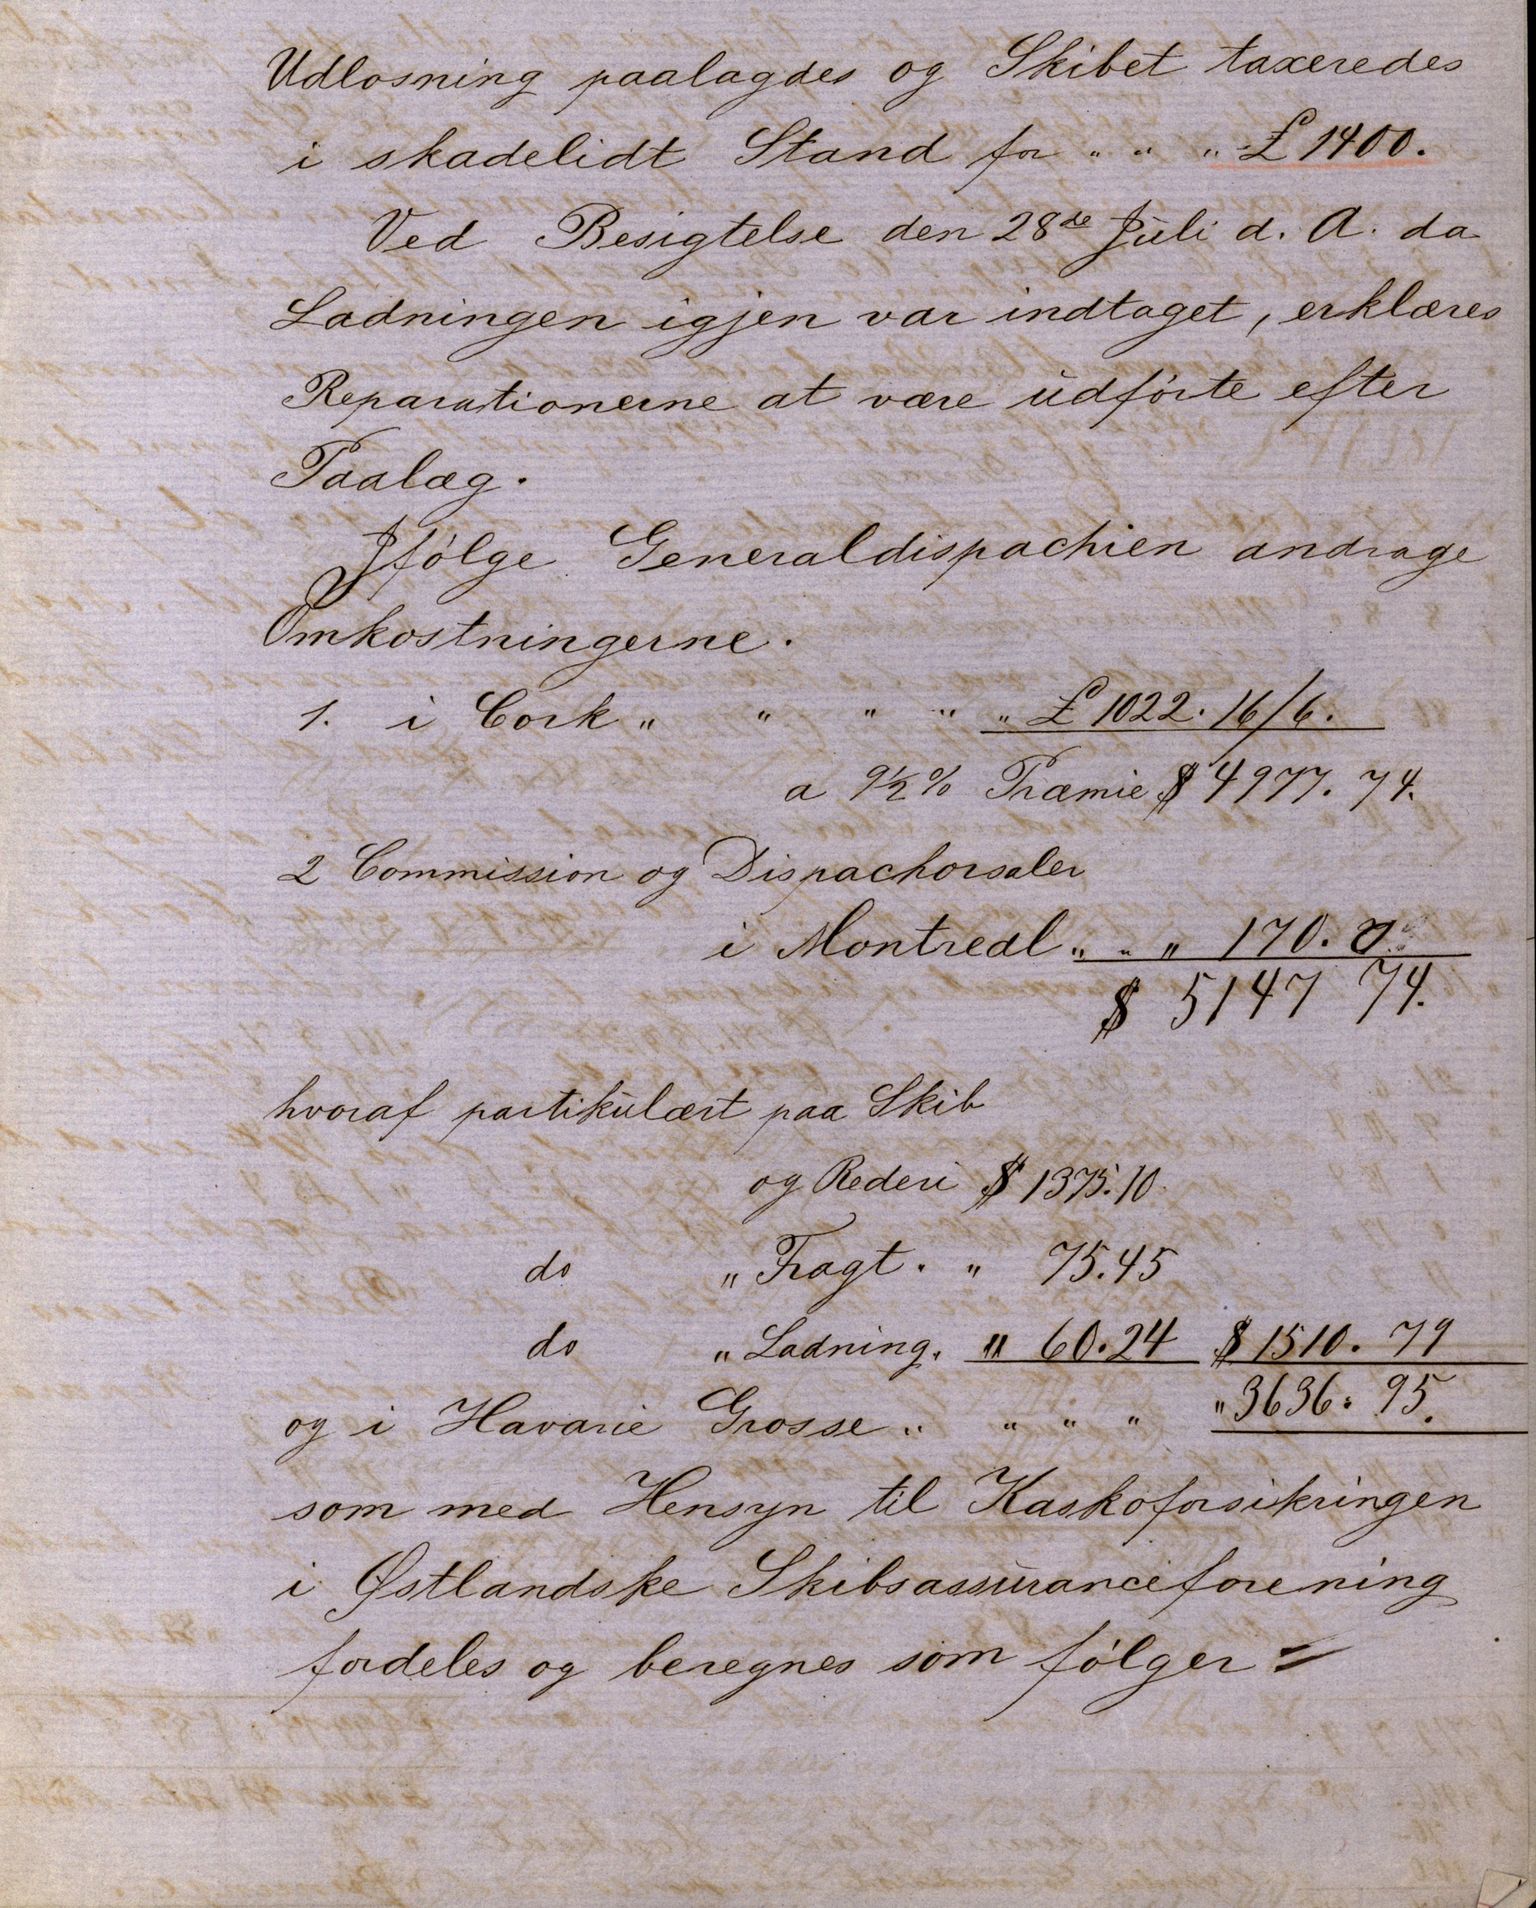 Udlosning paalagdes og Skibet taxeredes
i skadelidt Stand for " " " £ 1400.
Ved Besigtelse den 28de Juli d. A. da
Ladningen igjen var indtaget, erklæres
Reparationerne at være udførte efter
Paalæg.
Ifølge Generaldispachien andrage
Omkostningerne.
1. i Cork " " " " " £ 1022. 16/6.
a 9½ % Præmie $ 4977. 74.
2 Commission og Dispachorsaler
i Montredl " " " 170. 0
$ 5147 74.
hvoraf partikulært paa Skib
og Rederi $ 1375.10
do " Fragt. " 75.45
do " Ladning. " 60.24 $ 1510. 79
og i Havarie Grosse " " " " " 3636. 95.
som med Hensyn til Kaskoforsikringen
i Østlandske Skibsassuranceforening
fordeles og beregnes som følger =